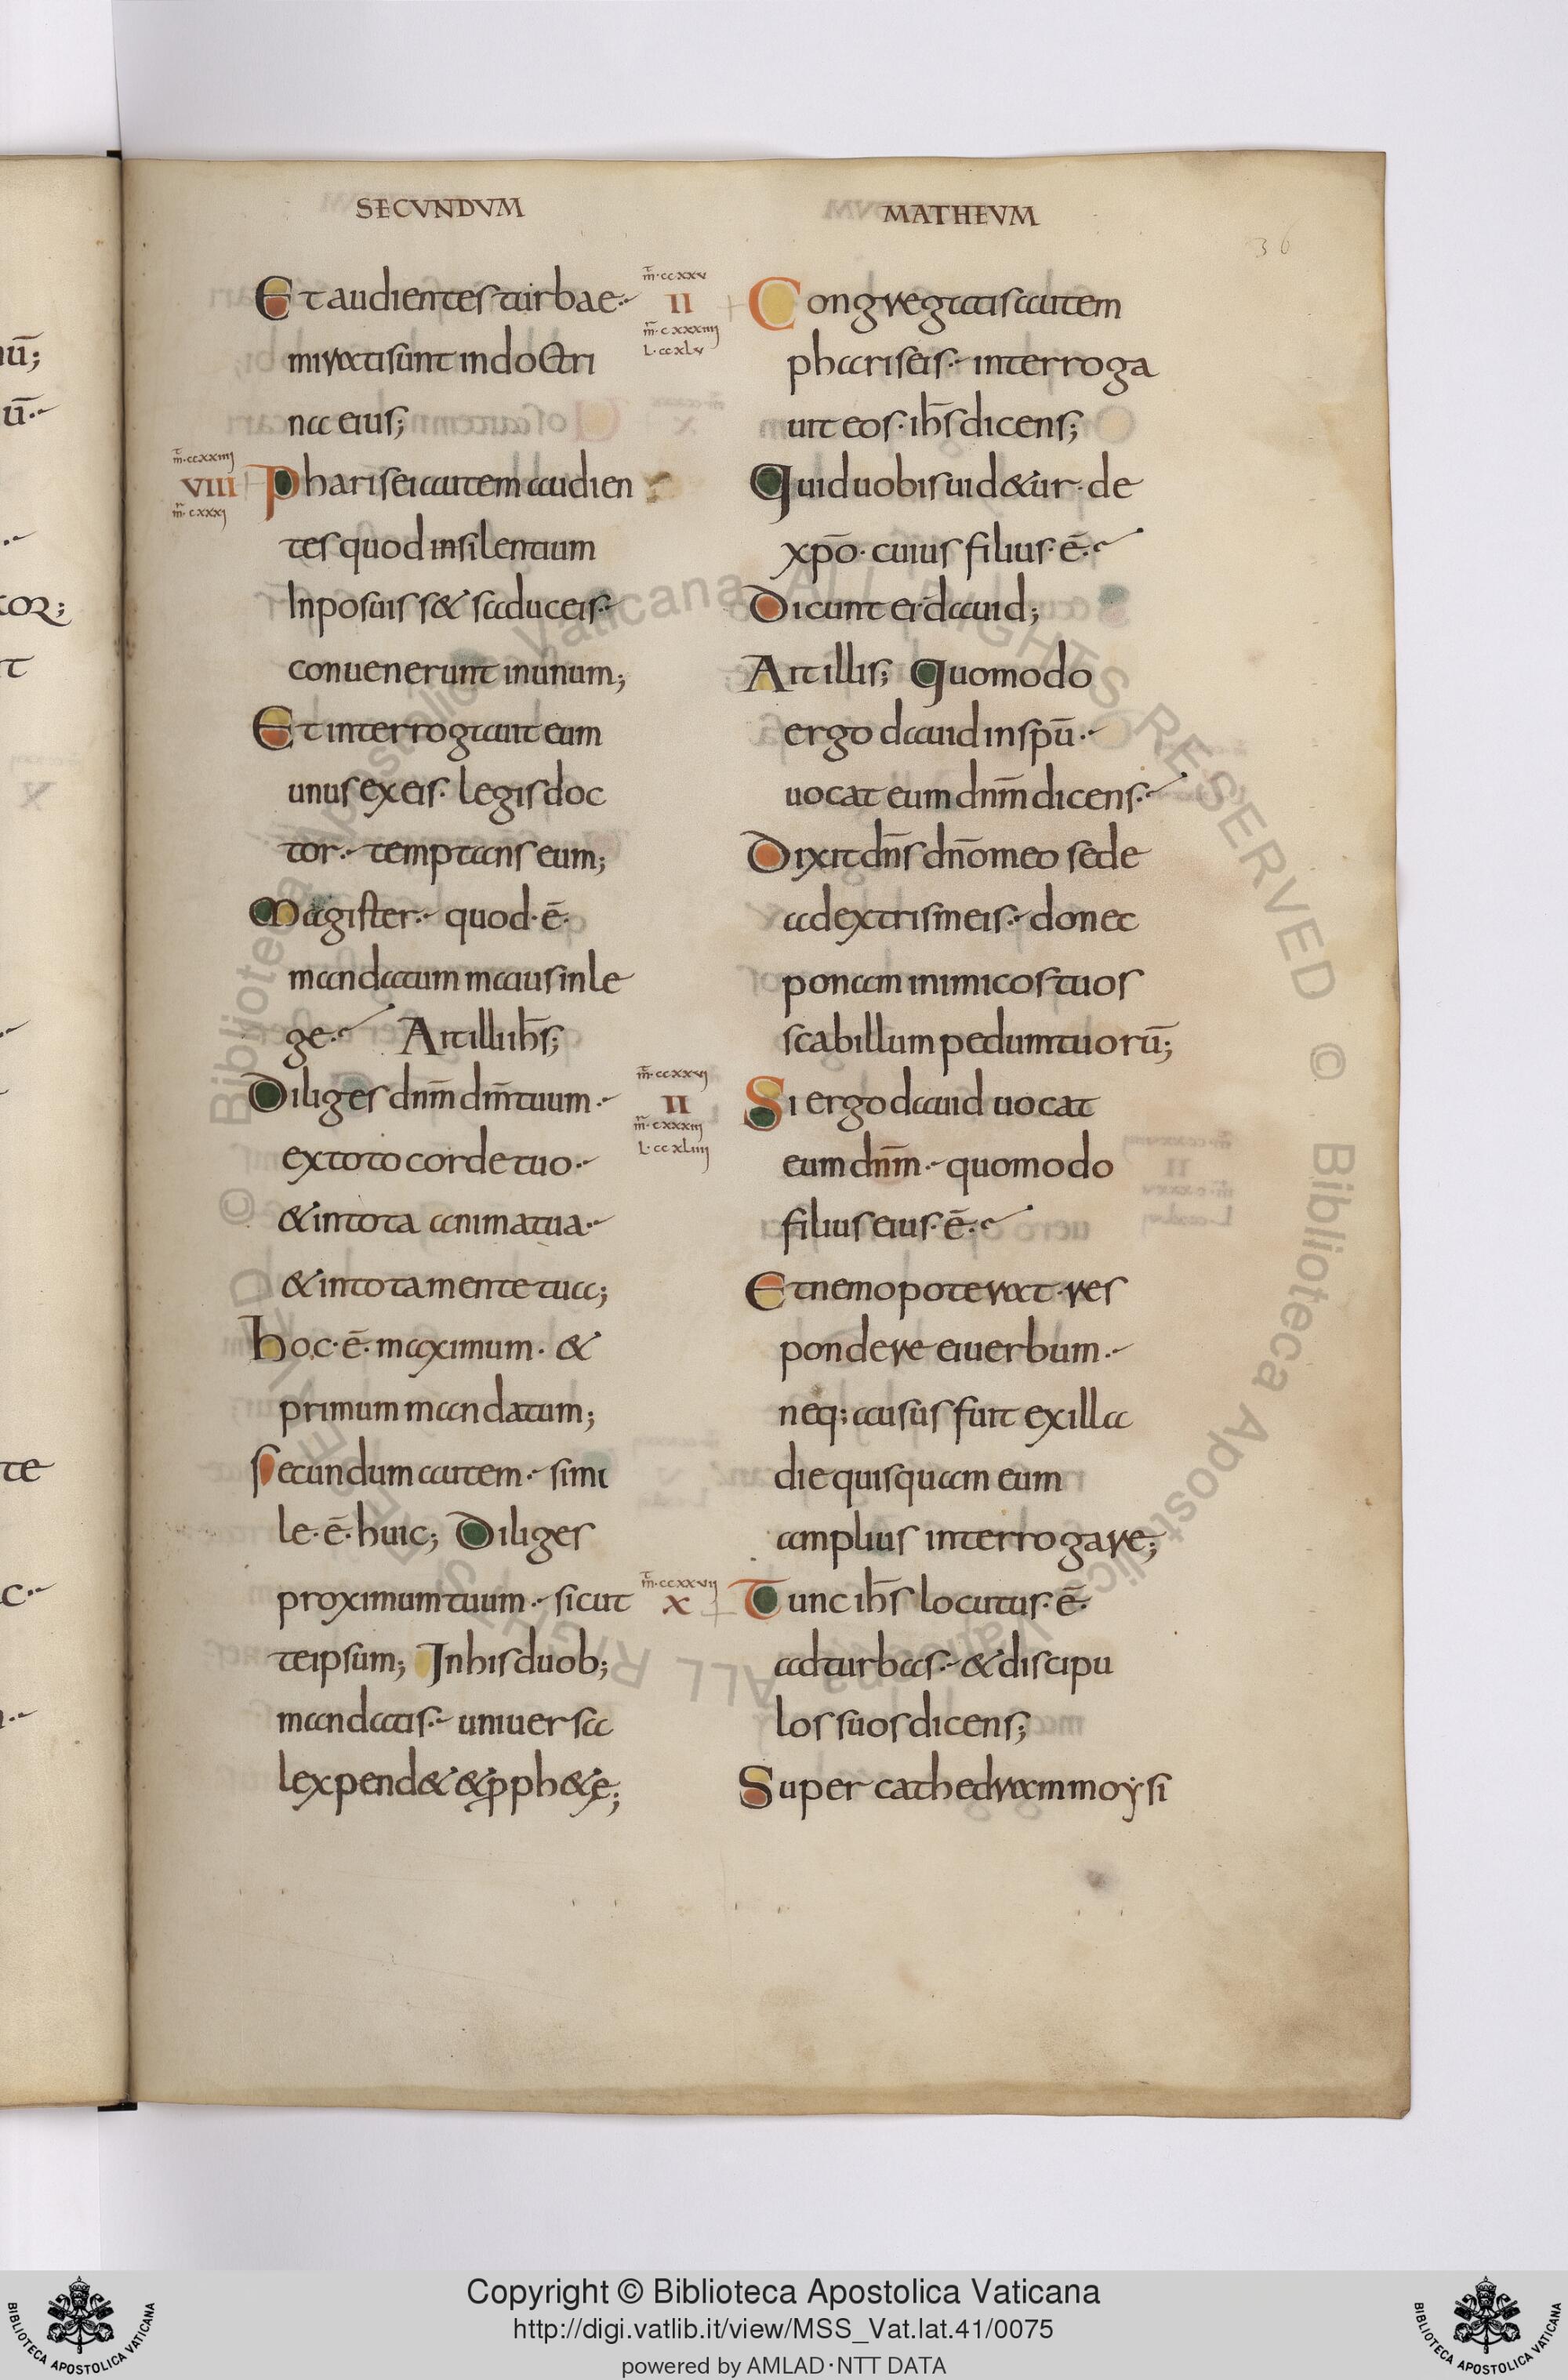 SECVNDVM
MATHEVM
36
Et audientes turbae
mirati sunt in doctri
na eius;
m̄·ccxxiiij
VIII
m̄·cxxxj
Pharisei autem audien
tes quod in silentium
Inposuiss& saduceis
conuenerunt in unum;
Et interrogauit eum
unus ex eis· legis doc
tor· temptans eum;
Magister· quod·ē·
mandatum maius in le
ge· Ait illi ih̄s;
Diliges dnm̄ dm̄ tuum·
ex toto corde tuo·
& in tota anima tua·
& in tota mente tua;
hoc·ē· maximum· &
primum mandatum;
secundum autem· simi
le·ē· huic; Diliges
proximum tuum· sicut
teipsum; In his duob;
mandatis· uniuersa
lex pend& & pph&ę;
m̄·ccxxv
II
m̄·cxxxiiij
L·ccxlv
Congregatis autem
phariseis· interroga
uit eos· ih̄s dicens;
Quid uobis uid&ur· de
xp̄o· cuius filius·ē·
Dicunt ei· dauid;
Ait illis; Quomodo
ergo dauid in sp̄u·
uocat eum dnm̄ dicens·
Dixit dn̄s dn̄o meo sede
a dextris meis· donec
ponam inimicos tuos
scabillum pedum tuorū;
m̄·ccxxvj
II
m̄·cxxxiij
L·ccxliiij
Si ergo dauid uocat
eum dnm̄· quomodo
filius eius·ē·
Et nemo poterat· res
pondere ei uerbum·
neq; ausus fuit ex illa
die quisquam eum
amplius interrogare;
m̄·ccxxvij
X
Tunc ih̄s locutus·ē·
ad turbas· & discipu
los suos dicens;
Super cathedram moysi
Copyright © Biblioteca Apostolica Vaticana
http://digi.vatlib.it/view/MSS_Vat.lat.41/0075
powered by AMLAD·NTT DATA
BIBLIOTECA APOSTOLICA VATICANA
BIBLIOTECA APOSTOLICA VATICANA
© Biblioteca Apostolica Vaticana ALL RIGHTS RESERVED
© Biblioteca Apostolica Vaticana ALL RIGHTS RESERVED